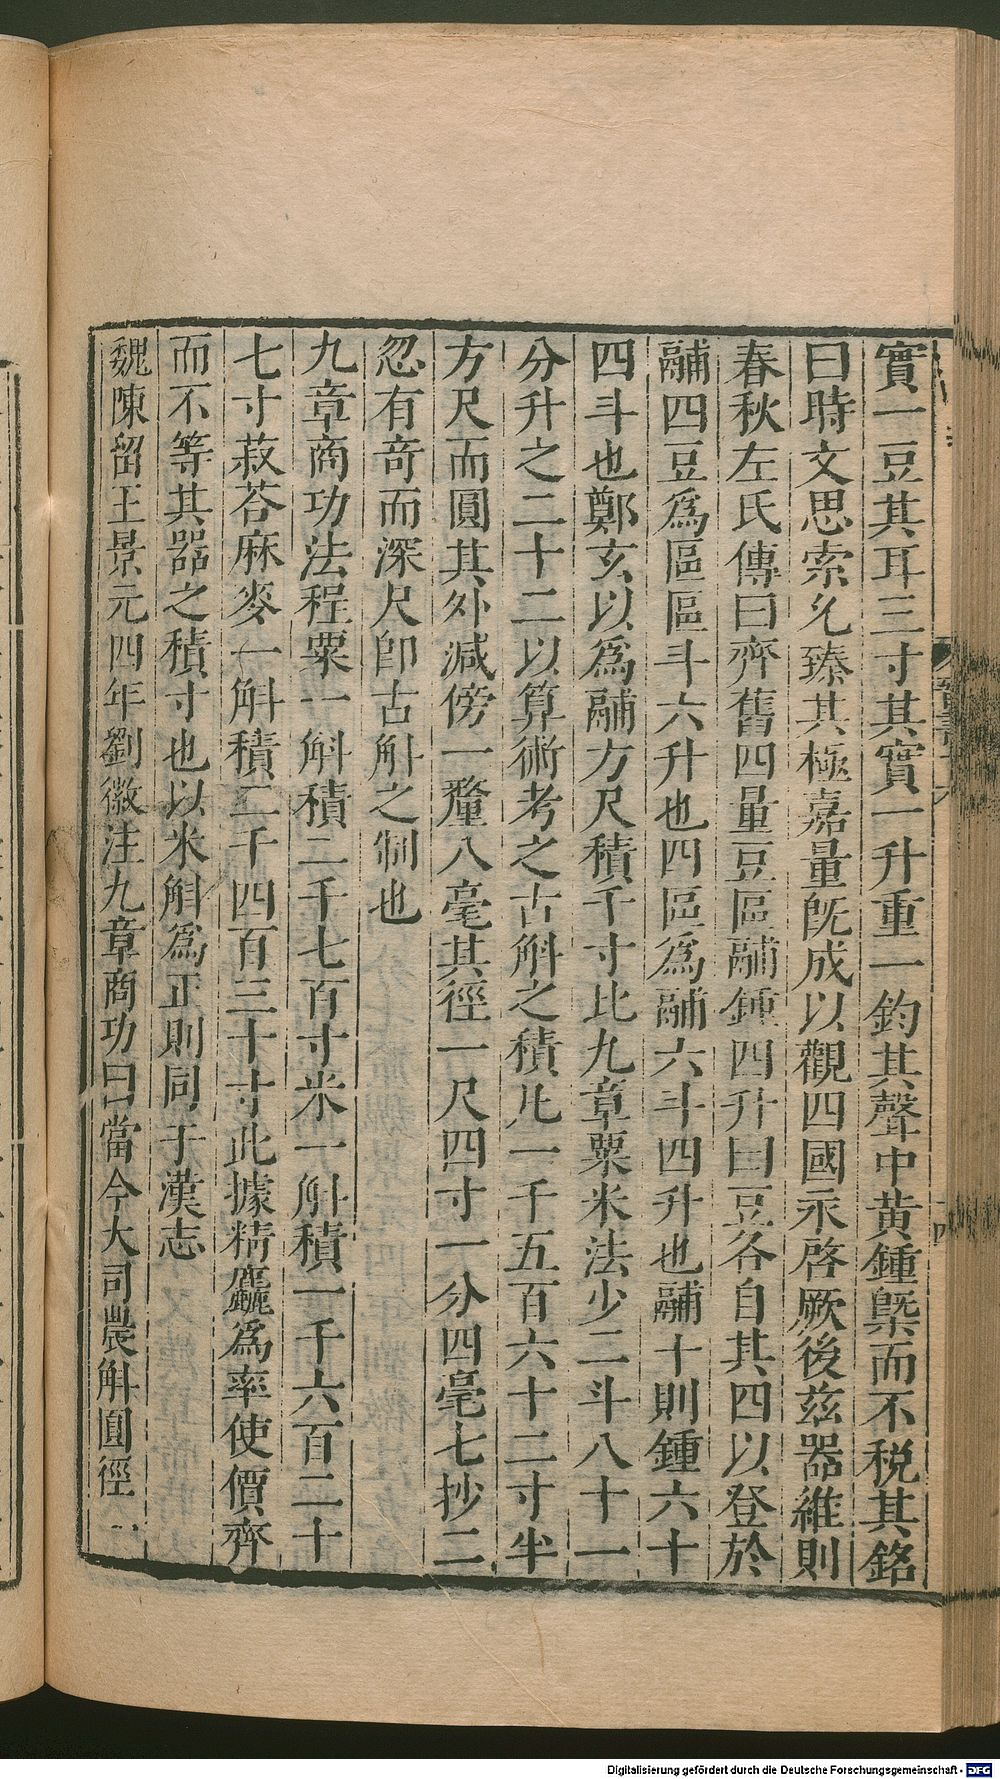 實一豆其耳三寸其實一升重一鈞其聲中黃鍾槩而不稅其銘
曰時文思索允臻其極嘉量旣成以觀四國永啓厥後茲器維則
春秋左氏傳曰齊舊四量豆區鬴鍾四升曰豆各自其四以登於
鬴四豆爲區區斗六升也四區爲鬴六斗四升也鬴十則鍾六十
四斗也鄭玄以爲鬴方尺積千寸比九章粟米法少二斗八十一
分升之二十二以算術考之古斛之積凡一千五百六十二寸半
方尺而圓其外減傍一釐八毫其徑一尺四寸一分四毫七抄二
忽有奇而深尺卽古斛之制也
九章商功法程粟一斛積二千七百寸米一斛積一千六百二十
七寸菽荅麻麥一斛積二千四百三十寸此據精麤爲率使價齊
而不等其器之積寸也以米斛爲正則同于漢志
魏陳留王景元四年劉徽注九章商功曰當今大司農斛圓徑一
Digitalisierung gefördert durch die Deutsche Forschungsgemeinschaft - DFG